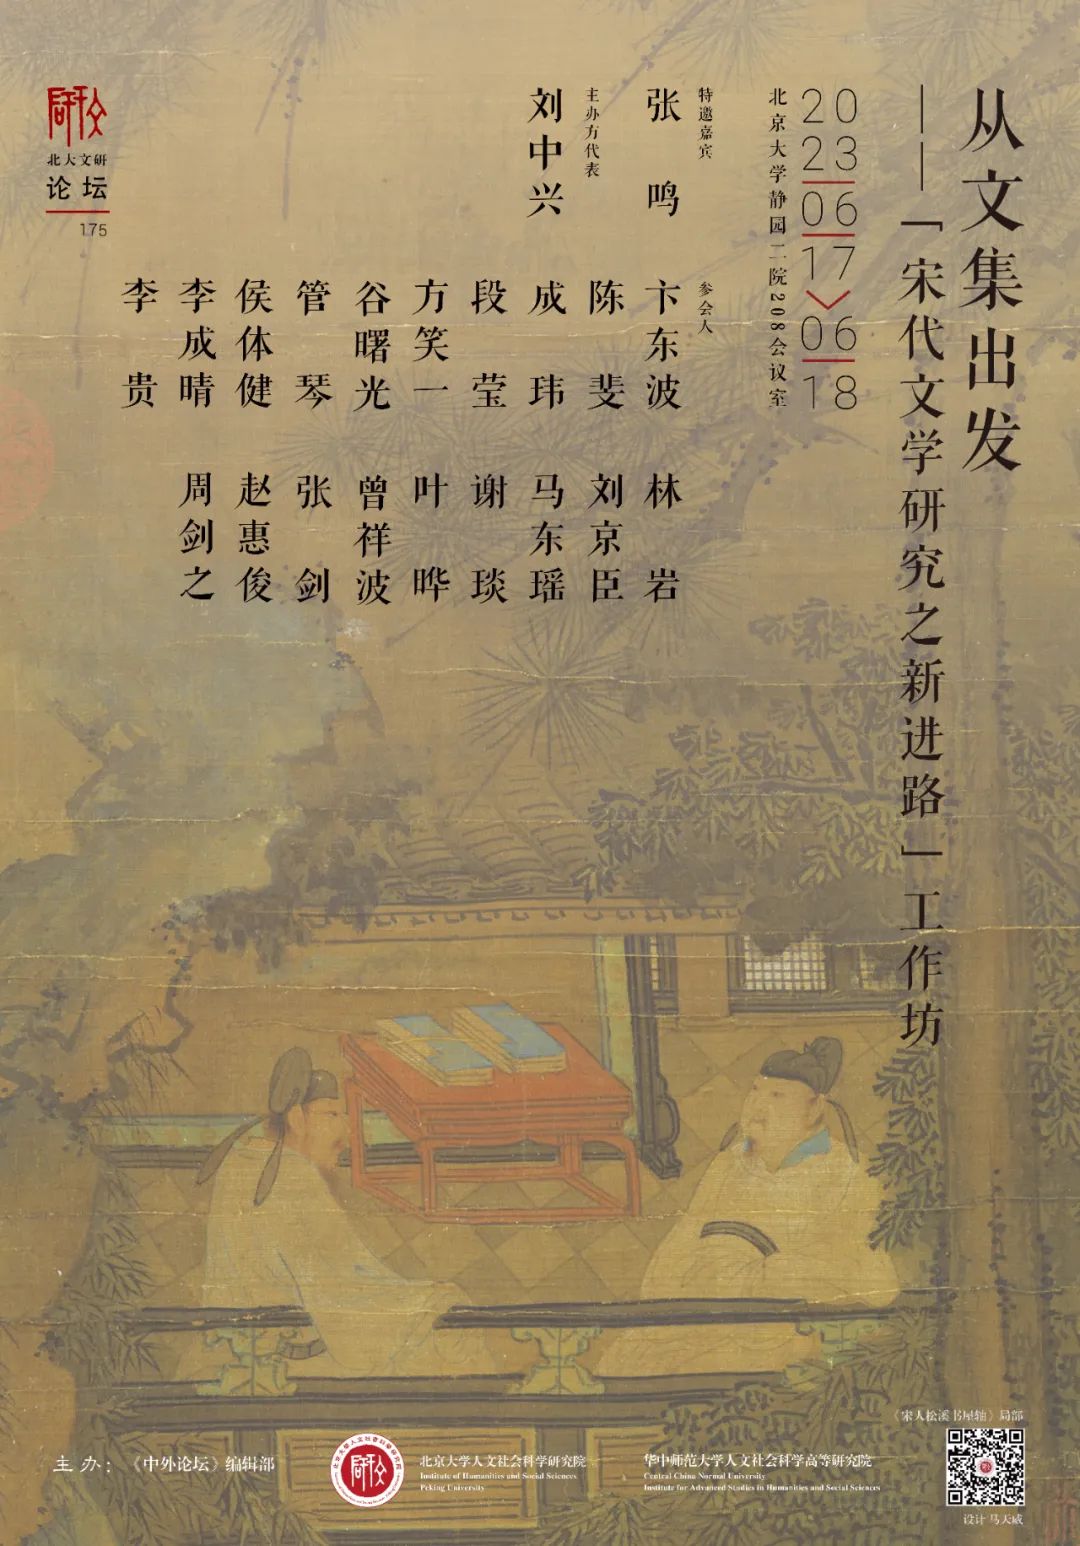 从文集出发
——「宋代文学研究之新进路」工作坊
20
23
06
17
06
18
北京大学静园二院208会议室
特邀嘉宾
张鸣
主办方代表
刘中兴
参会人
卞东波
陈斐
成玮
段莹
方笑一
谷曙光
管琴
侯体健
李成晴
李贵
林岩
刘京臣
马东瑶
谢琰
叶晔
曾祥波
张剑
赵惠俊
周剑之
北大文研
论坛
175
《宋人松溪书屋轴》局部
主办：《中外论坛》编辑部
北京大学人文社会科学研究院
Institute of Humanities and Social Sciences
Peking University
华中师范大学人文社会科学高等研究院
Central China Normal University
Institute for Advanced Studies in Humanities and Social Sciences
设计 马天威